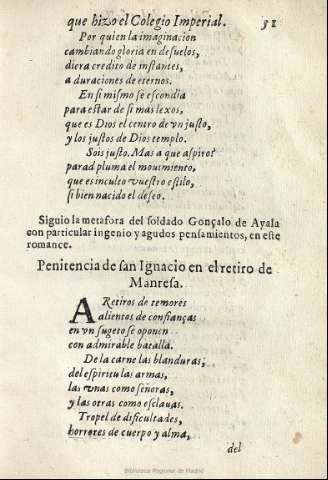 que hizo el Colegio Imperial. 51
Por quien la imaginacion
cambiando gloria en desuelos,
diera credito de instantes,
a duraciones de eternos.
En si mismo se escondia
para estar de si mas lexos,
que es Dios el centro de vn justo,
y los justos de Dios templo.
Sois justo. Mas a que aspiro?
parad pluma el mouimiento,
que es inculto vuestro estilo,
si bien nacido el deseo.
Siguio la metafora del soldado Gonçalo de Ayala
con particular ingenio y agudos pensamientos, en este
romance.
Penitencia de san Ignacio en el retiro de
Manresa.
A Retiros de temores
alientos de confianças
en vn sugeto se oponen
con admirable batalla.
De la carne las blanduras,
del espiritu las armas,
las vnas como señoras,
y las otras como esclauas.
Tropel de dificultades,
horrores de cuerpo y alma,
del
Biblioteca Regional de Madrid